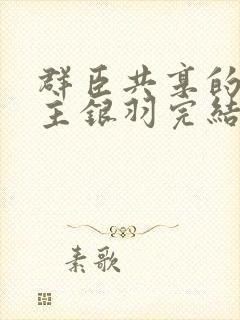 群臣共享的
主银羽完結
素歌